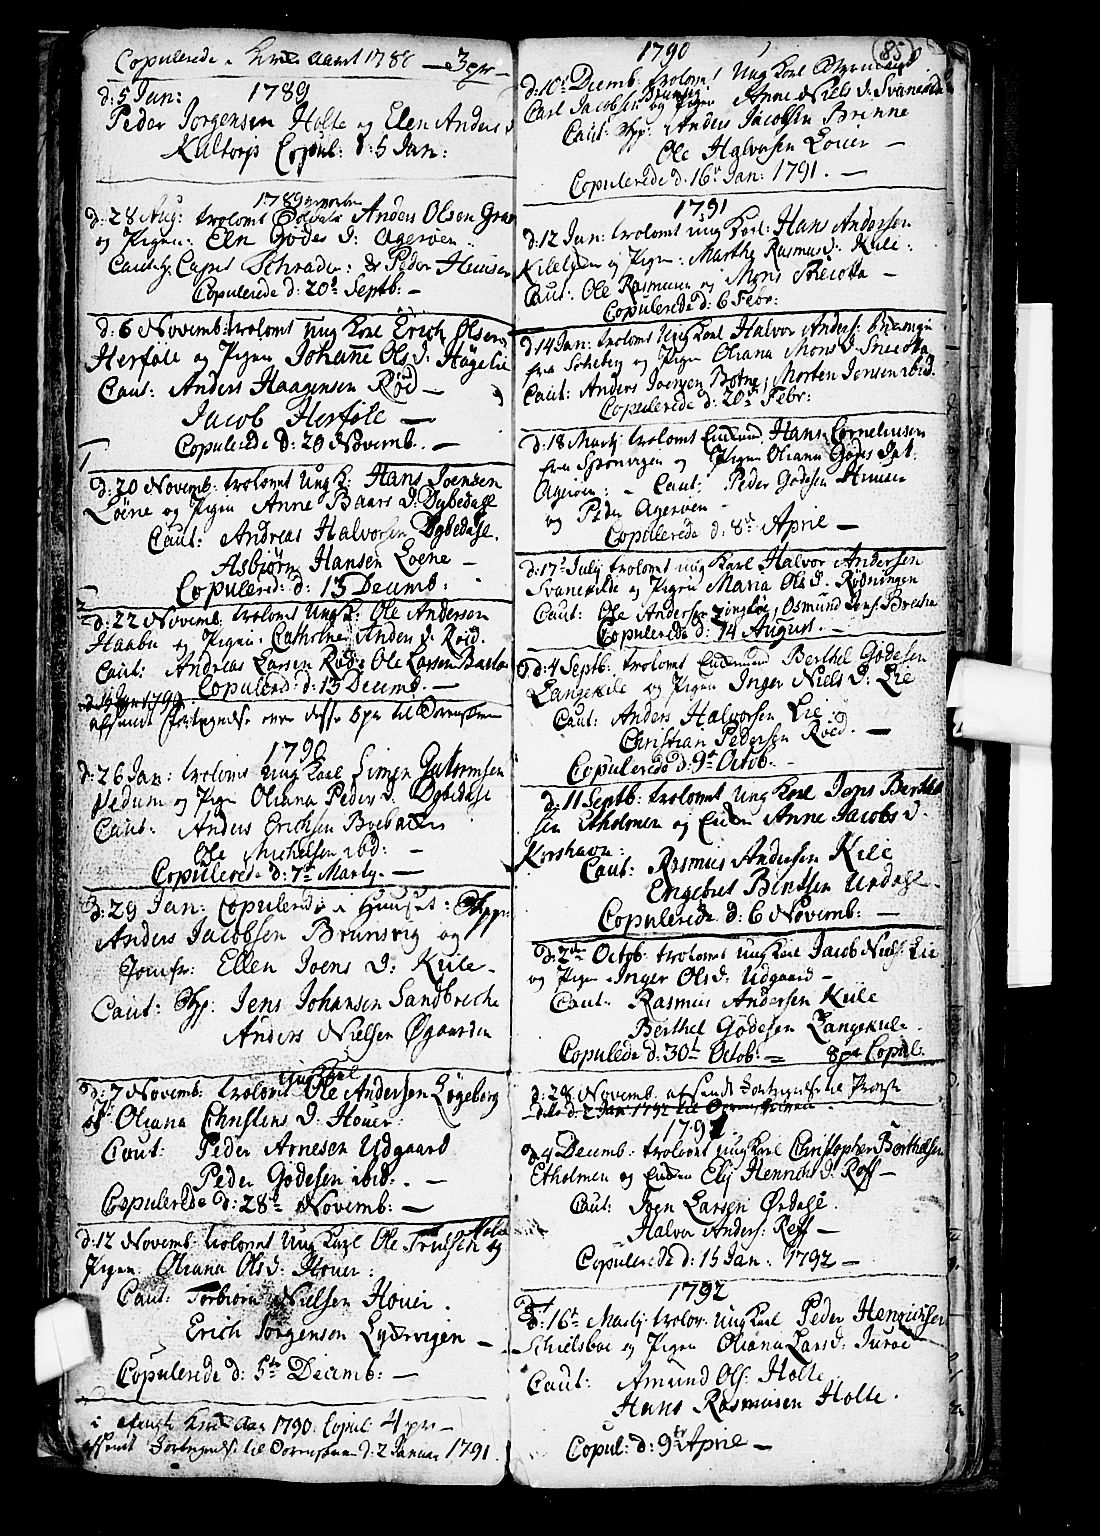 Copulerede i Aaret 1788 — 3 pr —
1789
d: 5 Jan:
Peder Jorgensen Holte og Elen Anders D
Kaltorp Copul: d: 5 Jan:
1789
d: 28 Aug: trolovet Anders Olsen
og Pigen: Eln Godes D: Agerøen
Caut: Capt Schrader: & Peder Hensen
Copulerede d: 20t Septb: —
d: 6 Novemb: trolovet ung Karl Erich Olsen
Herføle og Pigen Johanne Ols D: Høgelie
Caut: Anders Haagensen Rød —
Jacob Herføle —
Copulerede d: 29 Novemb. —
d: 20 Novemb: trolovet Ung K: Hans Joensen
Loene og Pigen Anne Baars D: Dybedahl
Caut: Andreas Halvorsen Dybedahl.
Asbjørn Hansen Loene —
Copulered: d: 13 Decemb:
d: 22 Novemb. trolovet Ung K: Ole Andersen
Haabu og Pigen: Cathrine Anders D: Røed.
Caut: Andreas Larsen Rød & Ole Larsen
Copulered: d: 13 Decemb: —
afsendt fortegnelse over desse 5 pr til
1790
d: 26 Jan: trolovet Ung Karl Simen Guttormsen
Vedum og Pigen Oliana Peder D: Dybedahl
Caut: Anders Erichsen Boebakken
Ole Michelsen ibd: —
Copulerede d: 7t Marty. —
d: 29 Jan: Copulerede i Huuset: Skpp:
Anders Jacobsen Brunsvig og
Jomfr: Ellen Joens D: Kiile —
Caut: Skp: Jens Johansen Sandbrecke
Anders Nielsen Øgaarden
ung Karl
d: 7 Novemb. trolovet Ole Andersen Løgeborg
og Oliana Christens D: Houer:
Caut: Peder Arnesen Udgaard
Peder Godesen ibid: . —
Copulerede d: 28t Novemb: —
d: 12 Novemb: trolovet Ung Karl Ole Trulsen og
Pigen Oliana Ols D: Houer:
Caut: Torbiorn Nielsen Houer.
Erich Jorgenson Lydervigen —
Copulerede d: 5te Decemb: —
Aar 1790. Copul: 4 pr —
afsent Fortegnels: til d: 2 Januar 1791.
85
1790
d: 10t Decemb. trolovet Ung Karl
Brunsvig
Carl Jacobsen og Pigen Anne Niels D: Svanekile
Caut: Skp: Anders Jacobsen Brinne
Ole Halvorsen Louer —
Copulerede d: 16t Jan: 1791. —
1791
d: 12 Jan: trolovet ung Karl: Hans Andersen
og Pigen: Marthe Rasmus D: Kile.
Caut: Ole Rasmusen og Mons Sneeotta —
Copulerede d: 6 Febr:
d: 14 Jan: trolovet Ung Karl Halvor Anders:
fra og Pigen Oliana Mons D: Sneeotta
Caut: Anders Joensen Botne, Morten Jensen ibid:
Copulerede d: 20t Febr:
d: 18 Martj trolovet Enkemd Hans Cornelnusen
fra Spornvigen og Pigen Oliana Godes Dat:
Agerøen: — Caut: Peder Godesen Hensen
og Peder Agerøen —
Copulerede d: 8t April —
d: 17t July trolovet ung Karl Halvor Andersen
Svanekile og Pigen Maria Ols D. Rødningen
Caut: Ole Andersen, Osmund
Copulerede d: 14 August. —
d: 4 Septb: trolovet Enkemand Berthel Godesen
Langekile og Pigen Inger Niels D: Lie
Caut: Anders Halvorsen Lie
Christian Pedersen Røed. —
Copulerede d: 9t Octob. —
d: 11 Septb: trolovet Ung Karl Jens Berthel
sen Etholmen og Enken Anne Jacobs D.
Korshavn:
Caut: Rasmus Andersen Kile
Engebret Bentsen Urdahl.
Copulerede d: 6 Novemb: —
d: 2de Octob. trolovet Ung Karl Jacob Niels: Lie
og Pigen Inger Ols D: Udgaard —
Caut: Rasmus Andersen Kiile
Berthel Godesen Langekiile.
Copulede d: 30t Octob: = 8 pr Copul:
d: 28 Novemb. afsendt Fortegnelse til Provst
d: 2 Jan: 1792 til
1791
d: 4 Decemb: trolovet ung Karl Christopher Berthelsen
Etholmen og Enken Elij Henrichs D: Roff —
Caut: Iven Larsen Ørdahl.
Halvor Anders: Reff —
Copulerede d: 15 Jan: 1792 —
1792
d: 16t Martj trolov: ung Karl Peder Henrichsen
Schielsboe og Pigen Oliana Lars D: Juroe
Caut: Amund Ols: Holte
Hans Rasmusen Holte.
Copul: d: 9de April —